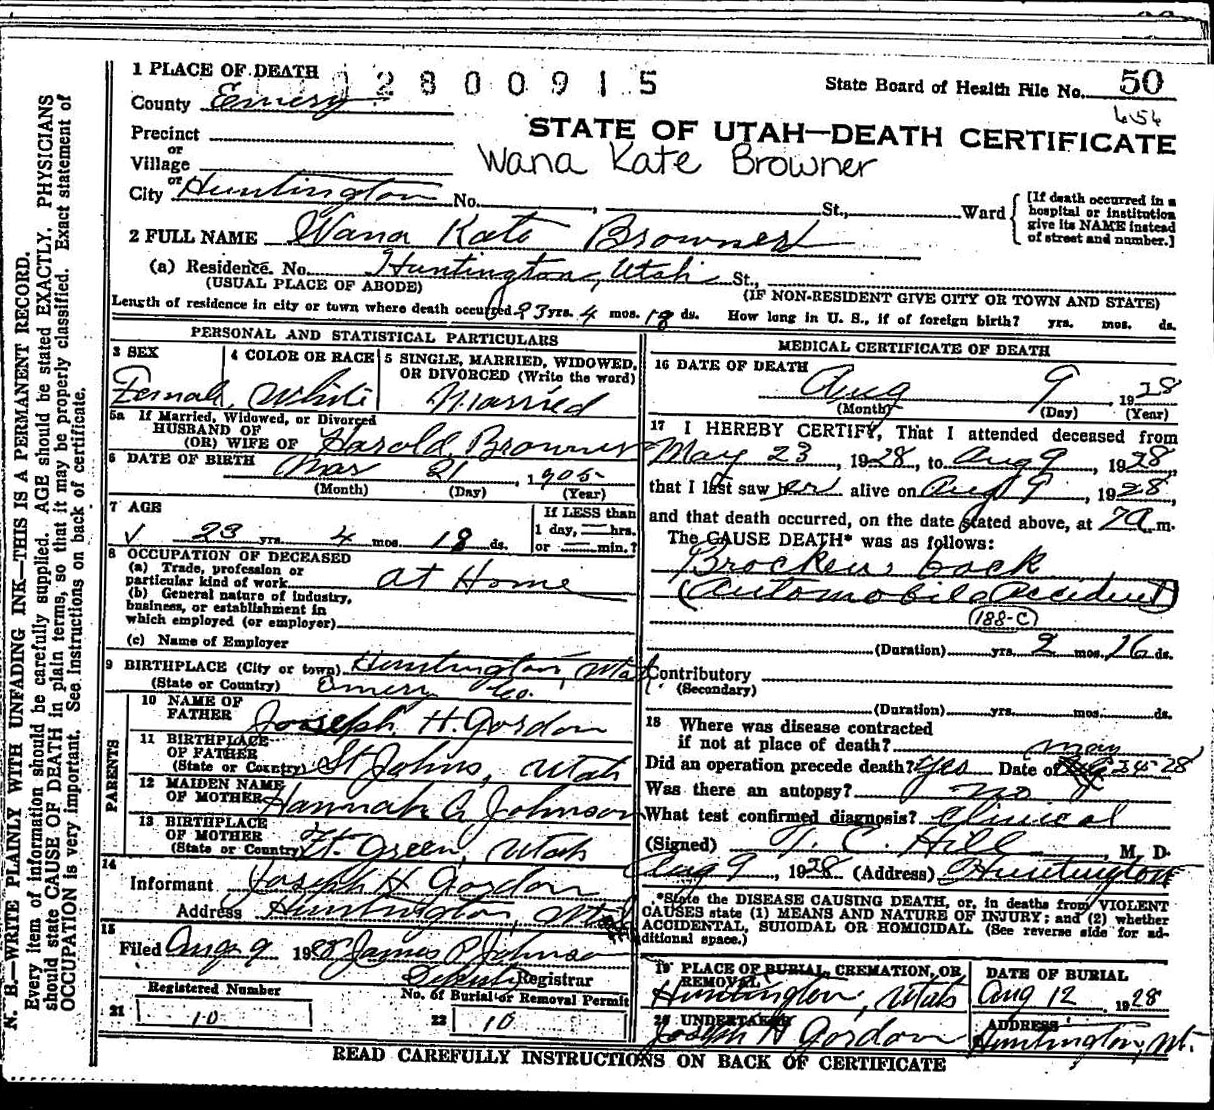 1 PLACE OF DEATH
2 8 0 0 9 1 5
State Board of Health File No. 50
County Emery
654
STATE OF UTAH—DEATH CERTIFICATE
Precinct
or
Village
Wana Kate Browner
or
City Huntington No. , St., Ward
[If death occurred in a
hospital or institution
give its NAME instead
of street and number.]
2 FULL NAME Wana Kate Browner
(a) Residence. No. Huntington, Utah St.,
(USUAL PLACE OF ABODE) (IF NON-RESIDENT GIVE CITY OR TOWN AND STATE)
Length of residence in city or town where death occurred 23 yrs. 4 mos. 18 ds. How long in U. S., if of foreign birth? yrs. mos. ds.
PERSONAL AND STATISTICAL PARTICULARS
3 SEX
Female
4 COLOR OR RACE
White
5 SINGLE, MARRIED, WIDOWED,
OR DIVORCED (Write the word)
Married
5a If Married, Widowed, or Divorced
HUSBAND OF
(OR) WIFE OF Harold Browner
6 DATE OF BIRTH Mar 21, 1905
(Month) (Day) (Year)
7 AGE
23 yrs. 4 mos. 18 ds.
If LESS than
1 day, — hrs.
or — min.?
8 OCCUPATION OF DECEASED
(a) Trade, profession or
particular kind of work at Home
(b) General nature of industry,
business, or establishment in
which employed (or employer)
(c) Name of Employer
9 BIRTHPLACE (City or town) Huntington, Utah
(State or Country) Emery Co.
PARENTS
10 NAME OF
FATHER Joseph H. Gordon
11 BIRTHPLACE
OF FATHER
(State or Country) St Johns, Utah
12 MAIDEN NAME
OF MOTHER Hannah A Johnson
13 BIRTHPLACE
OF MOTHER
(State or Country) Ft. Green, Utah
14
Informant Joseph H Gordon
Address Huntington, Utah
15
Filed Aug. 9 1928 James P. Johnson
Deputy Registrar
Registered Number
21 10
No. of Burial or Removal Permit
22 10
MEDICAL CERTIFICATE OF DEATH
16 DATE OF DEATH
Aug 9, 1928
(Month) (Day) (Year)
17 I HEREBY CERTIFY, That I attended deceased from
May 23, 1928, to Aug 9, 1928,
that I last saw her alive on Aug 9, 1928,
and that death occurred, on the date stated above, at 7a m.
The CAUSE DEATH* was as follows:
Brocken back
(Automobile Accident)
(188-C)
(Duration) yrs. 2 mos. 16 ds.
Contributory
(Secondary)
(Duration) yrs. mos. ds.
18 Where was disease contracted
if not at place of death?
May
Did an operation precede death? Yes Date of 24 28
Was there an autopsy? no
What test confirmed diagnosis? Clinical
(Signed) T. C. Hill, M. D.
Aug 9, 1928 (Address) Huntington
*State the DISEASE CAUSING DEATH, or, in deaths from VIOLENT
CAUSES state (1) MEANS AND NATURE OF INJURY; and (2) whether
ACCIDENTAL, SUICIDAL OR HOMICIDAL. (See reverse side for ad-
ditional space.)
19 PLACE OF BURIAL, CREMATION, OR
REMOVAL
Huntington, Utah
DATE OF BURIAL
Aug 12, 1928
20 UNDERTAKER
Joseph H Gordon
ADDRESS
Huntington, Ut.
READ CAREFULLY INSTRUCTIONS ON BACK OF CERTIFICATE
N. B.—WRITE PLAINLY WITH UNFADING INK—THIS IS A PERMANENT RECORD.
Every item of information should be carefully supplied. AGE should be stated EXACTLY. PHYSICIANS
should state CAUSE OF DEATH in plain terms, so that it may be properly classified. Exact statement of
OCCUPATION is very important. See instructions on back of certificate.